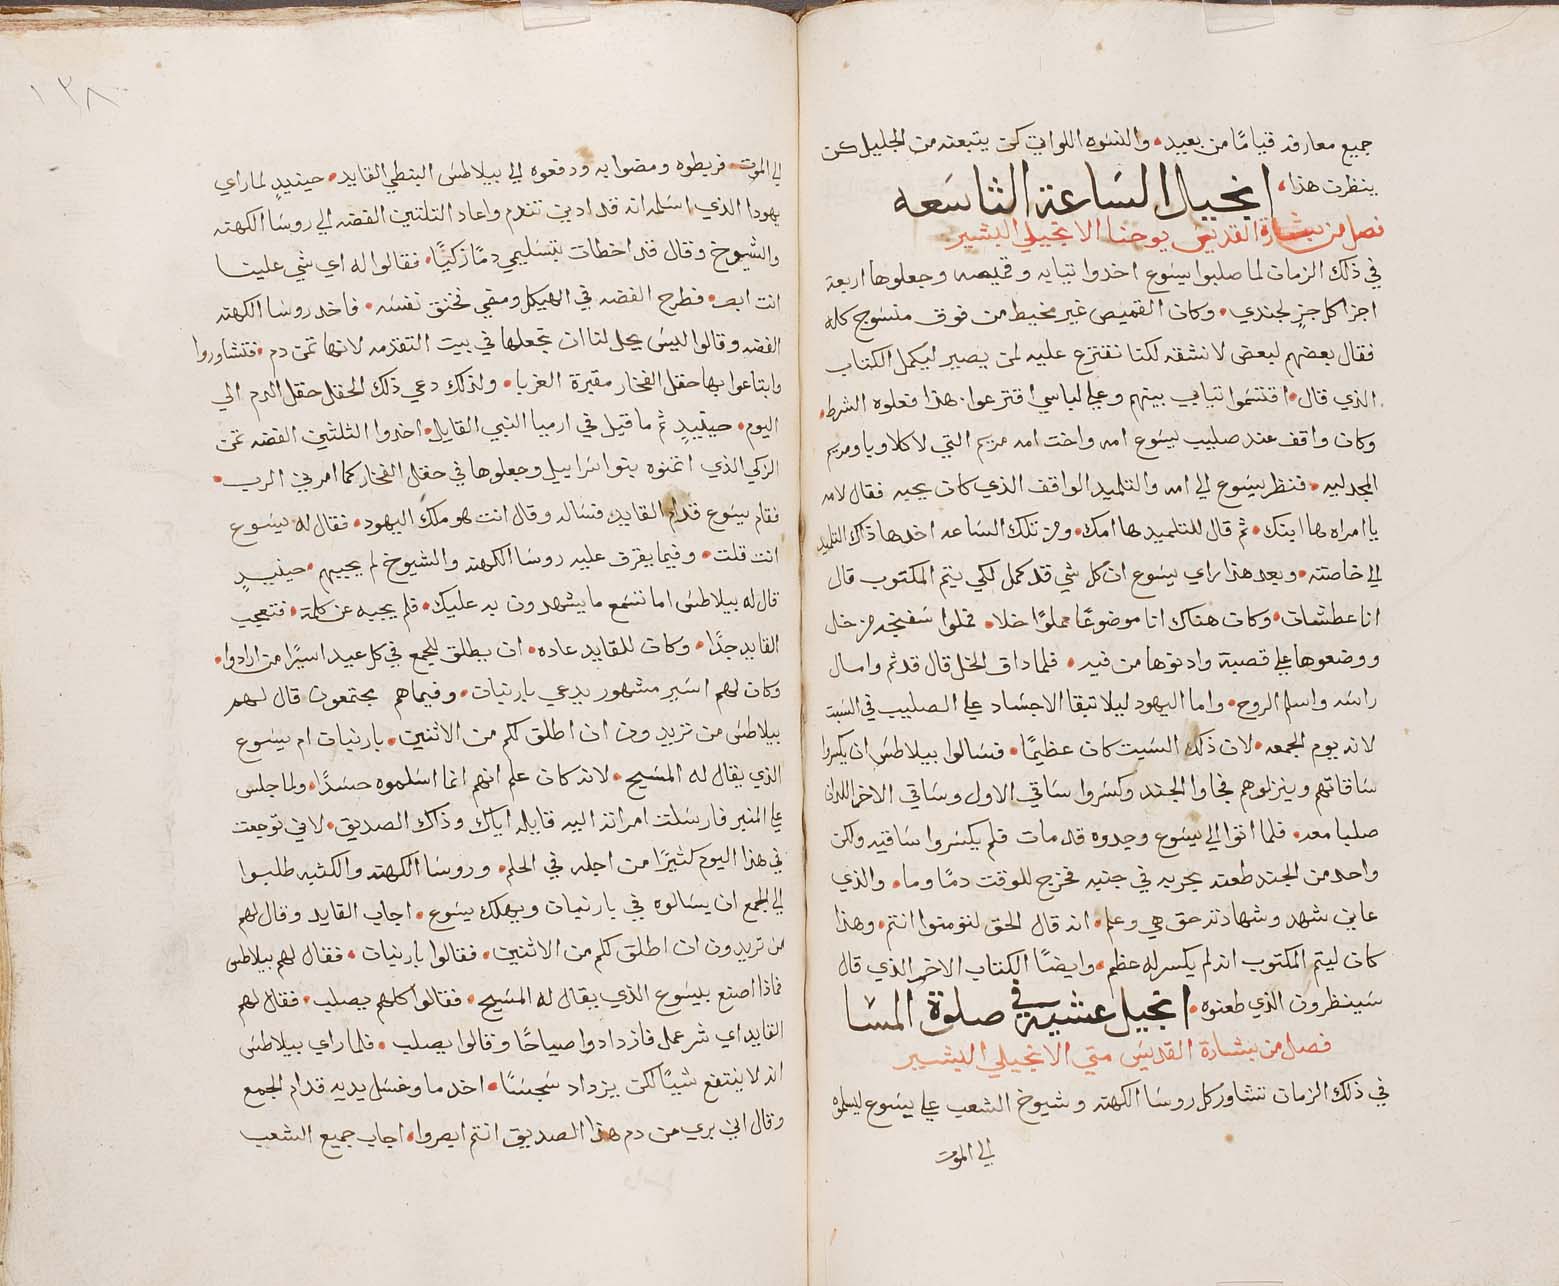 جميع معارفه قيامًا من بعيد، والنسوه اللواتي كن يتبعنه من الجليل كن
ينظرن هذا، انجيل الساعة التاسعه
فصل من بشارة القديس يوحنا الانجيلي البشير
في ذلك الزمان لما صلبوا يسوع اخدوا تيابه وقميصه وجعلوها اربعة
اجزا كل جزٍ لجندي، وكان القميص غير مخيط من فوق منسوج كله
فقال بعضهم لبعض لا نشقه لكنا نقترع عليه لمن يصير ليكمل الكتاب
الذي قال، اقتسموا تيابي بينهم وعلي لباسي اقترعوا، هذا فعلوه الشرط،
وكان واقف عند صليب يسوع امه واخت امه مريم التي لاكلاوبا ومريم
المجدليه، فنظر يسوع الي امه والتلميد الواقف الذي كان يحبه فقال لامه
يا امراه ها ابنك، ثم قال للتلميد ها امك، ومن تلك الساعه اخدها ذاك التلميد
الي خاصته، وبعد هذا راي يسوع ان كل شي قد كمل لكي يتم المكتوب قال
انا عطشان، وكان هناك انا موضوعًا مملوًا خلا، فملوا سفنجه من خل
ووضعوها علي قصبة وادنوها من فيه، فلما داق الخل قال قد تم وامال
راسه واسلم الروح، واما اليهود ليلا تبقا الاجساد علي الصليب في السبت
لانه يوم الجمعه، لان ذلك السبت كان عظيمًا، فسالوا بيلاطس ان يكسروا
ساقاتهم وينزلوهم فجاوا الجند وكسروا ساقي الاول وساقي الاخر اللدان
صلبا معه، فلما اتوا الي يسوع وجدوه قد مات فلم يكسروا ساقيه ولكن
واحد من الجند طعنه بحربه في جنبه فخرج للوقت دمًا وما، والذي
عاين شهد وشهادته حق هي وعلم، انه قال الحق لتؤمنوا انتم، وهذا
كان ليتم المكتوب انه لم يكسر له عظم، وايضًا الكتاب الاخر الذي قال
سينظرون الذي طعنوه، انجيل عشيه في صلوة المسا
فصل من بشارة القديس متي الانجيلي البشير
في ذلك الزمان تشاور كل روسا الكهنه وشيوخ الشعب علي يسوع ليسلموه
الي الموت
١٣٨
الي الموت، فربطوه ومضوا به ودفعوه الي بيلاطس البنطي القايد، حينيدٍ لما راي
يهودا الذي اسلمه انه قد ادين تندم واعاد التلتين الفضه الي روسا الكهنه
والشيوخ وقال قد اخطات بتسليمي دمًا زكيًا، فقالوا له اي شي علينا
انت ابصر، فطرح الفضه في الهيكل ومضي فخنق نفسه، فاخد روسا الكهنه
الفضه وقالوا ليس يحل لنا ان نجعلها في بيت التقدمه لانها تمن دم، فتشاوروا
وابتاعوا بها حقل الفخار مقبرة الغربا، ولذلك دعي ذلك الحقل حقل الدم الي
اليوم، حينيدٍ تم ما قيل في ارميا النبي القايل، اخدوا الثلثين الفضه تمن
الزكي الذي اتمنوه بنوا اسراييل وجعلوها في حقل الفخار كما امرني الرب،
فقام يسوع قدام القايد فساله وقال انت هو ملك اليهود، فقال له يسوع
انت قلت، وفيما يقرف عليه روسا الكهنه والشيوخ لم يجيبهم، حينيدٍ
قال له بيلاطس اما تسمع ما يشهدون به عليك، فلم يجيبه عن كلمة، فتعجب
القايد جدًا، وكان للقايد عاده، ان يطلق للجمع في كل عيد اسيرًا من ارادوا،
وكان لهم اسير مشهور يدعي بارنبان، وفيما هم مجتمعون قال لهم
بيلاطس من تريدون ان اطلق لكم من الاتنين، بارنبان ام يسوع
الذي يقال له المسيح، لانه كان علم انهم انما اسلموه حسدًا، ولما جلس
علي المنبر فارسلت امراته اليه قايله اياك وذاك الصديق، لاني توجعت
في هذا اليوم كثيرًا من اجله في الحلم، وروسا الكهنه والكتبه طلبوا
الي الجمع ان يسالوه في بارنبان ويهلك يسوع، اجاب القايد وقال لهم
من تريدون ان اطلق لكم من الاتنين، فقالوا بارنبان، فقال لهم بيلاطس
فماذا اصنع بيسوع الذي يقال له المسيح، فقالوا كلهم يصلب، فقال لهم
القايد اي شر عمل فازدادوا صياحًا وقالوا يصلب، فلما راي بيلاطس
انه لا ينتفع شيئًا لكن يزداد سجسًا، اخد ما وغسل يديه قدام الجمع
وقال اني بري من دم هذا الصديق انتم ابصروا، اجاب جميع الشعب